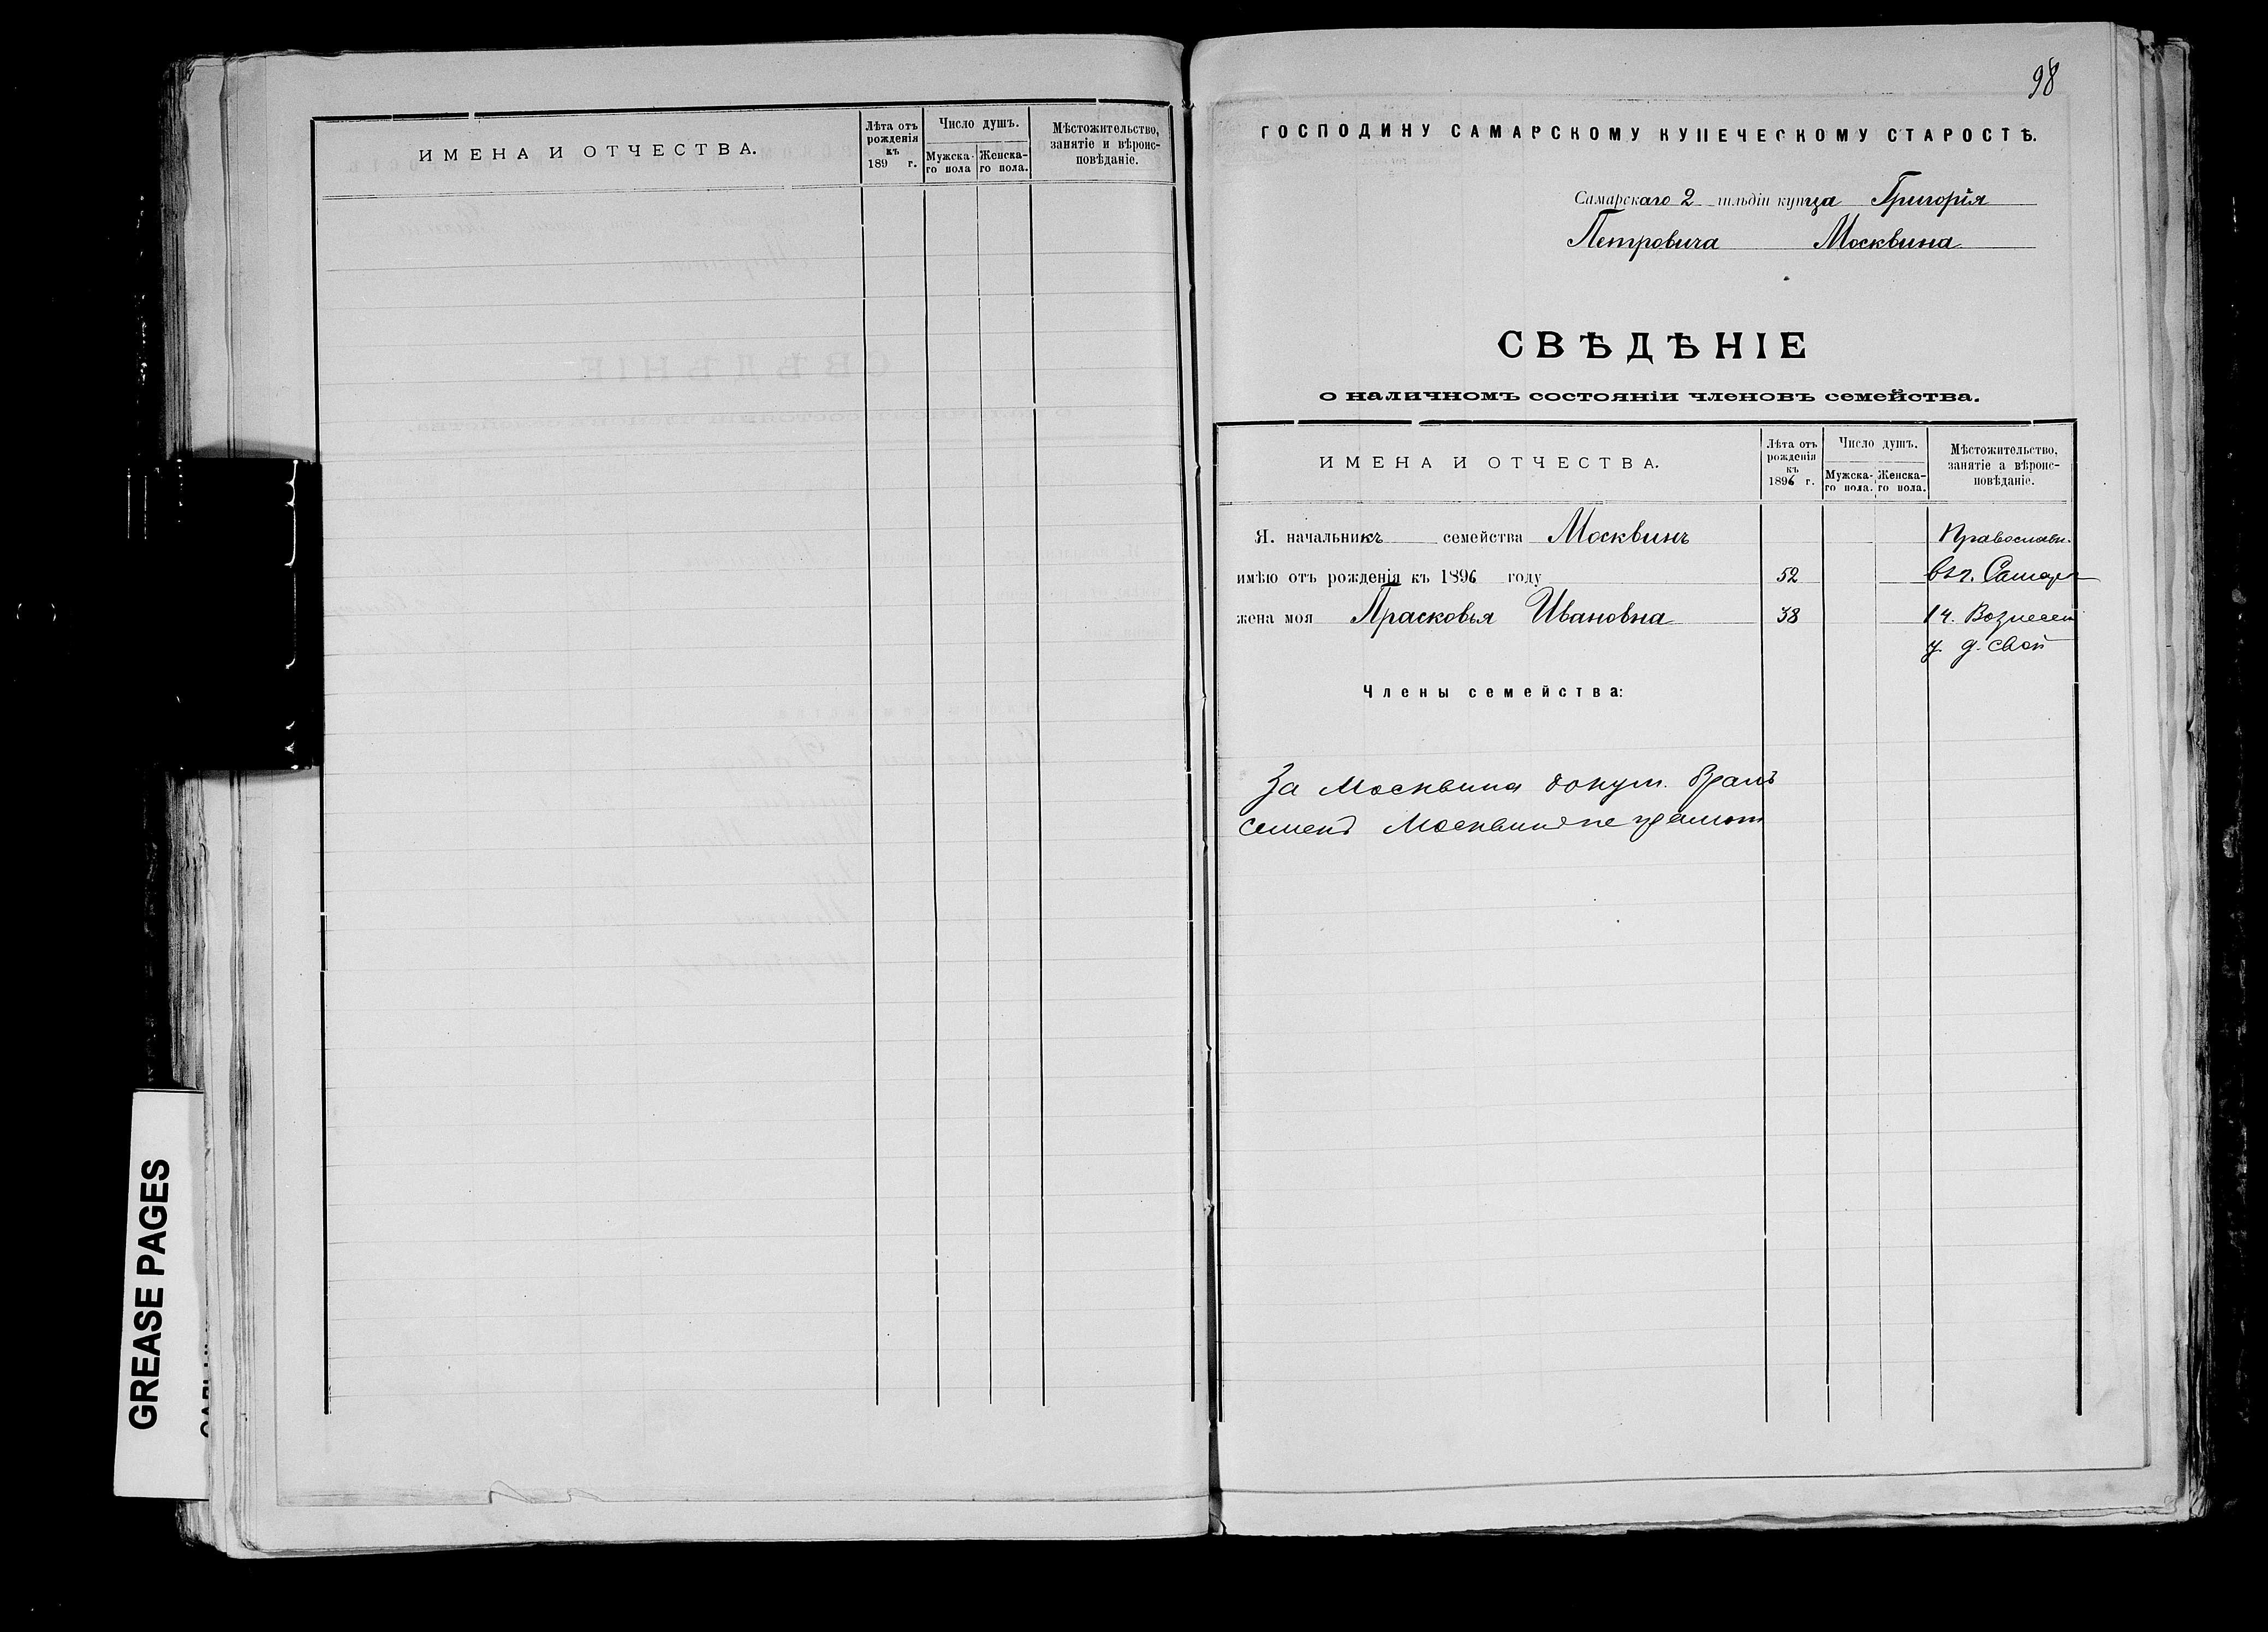 ИМЕНА И ОТЧЕСТВА.
Лѣта отъ
рожденія
къ
189 г.
Число душъ.
Мужска-
го пола
Женска-
го пола.
Мѣстожительство,
занятіе и вѣроис-
повѣданіе.
98
ГОСПОДИНУ САМАРСКОМУ КУПЕЧЕСКОМУ СТАРОСТѢ.
Самарскаго 2 гильдіи купца Григорія
Петровича Москвина
СВѢДѢНІЕ
о наличномъ состояніи членовъ семейства.
ИМЕНА И ОТЧЕСТВА.
Лѣта отъ
рожденія
къ
1896 г.
Число душъ.
Мужска-
го пола.
Женска-
го пола.
Мѣстожительство,
занятіе а вѣроис-
повѣданіе.
Я. начальникъ семейства Москвинъ Православн.
имѣю отъ рожденія къ 1896 году 52 въ г. Самарѣ
жена моя Прасковья Ивановна 38 1 ч. Вознесен
у. д. свой
Члены семейства:
За Москвина
Семенъ Москвин неграмот
GREASE PAGES